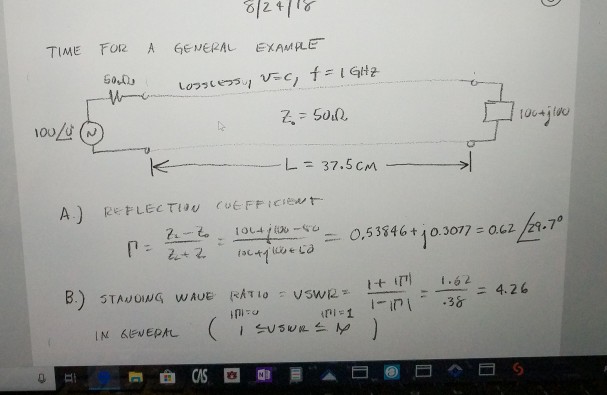 8/24/18
TIME FOR A GENERAL EXAMPLE
50Ω LOSSLESS, V=C, f = 1 GHZ
Z₀ = 50Ω
100+j100
100/0° N
L = 37.5 CM
A.) REFLECTION COEFFICIENT
Γ = (Z_L - Z₀)/(Z_L + Z₀) = (100+j100-50)/(100+j100+50) = 0.53846 + j0.3077 = 0.62 /29.7°
B.) STANDING WAVE RATIO = VSWR = (1+|Γ|)/(1-|Γ|) = 1.62/.38 = 4.26
|Γ|=0 |Γ|=1
IN GENERAL ( 1 ≤ VSWR ≤ ∞ )
CAS